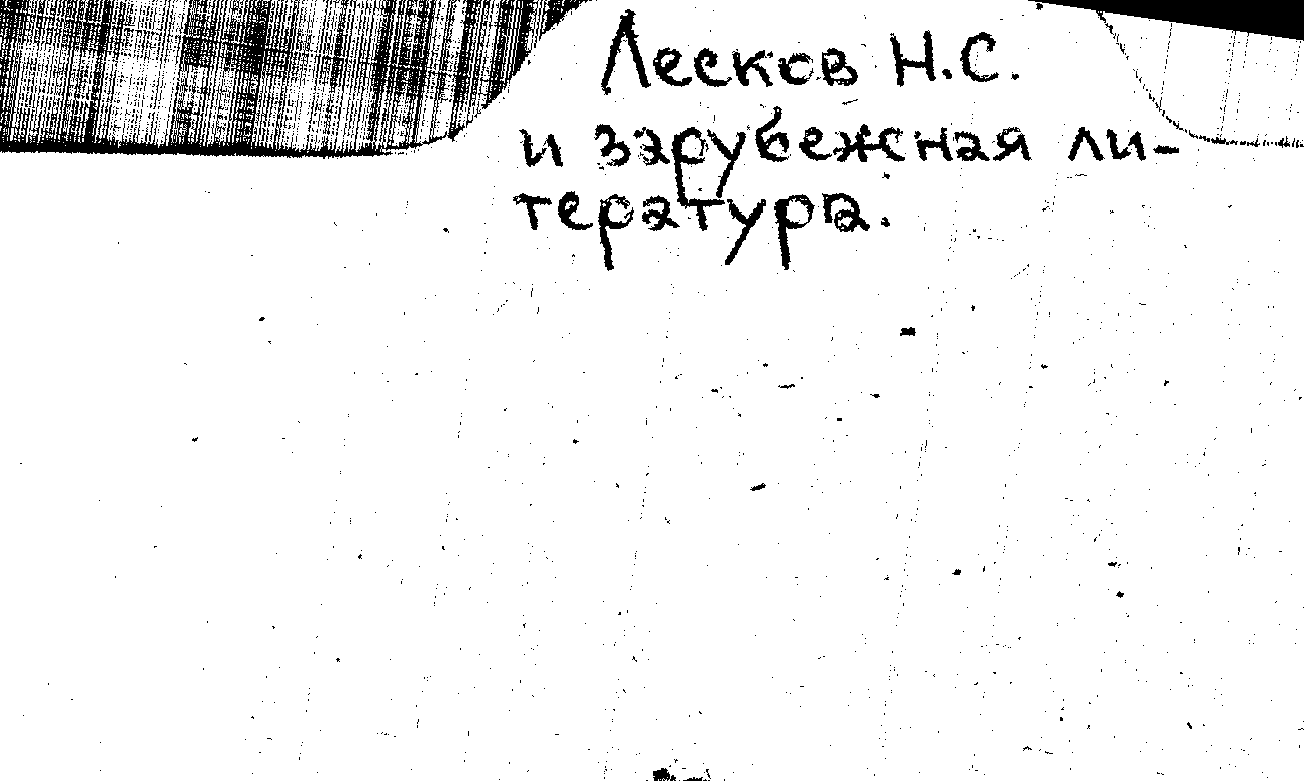 Лесков Н.С.
и зарубежная ли-
тература.